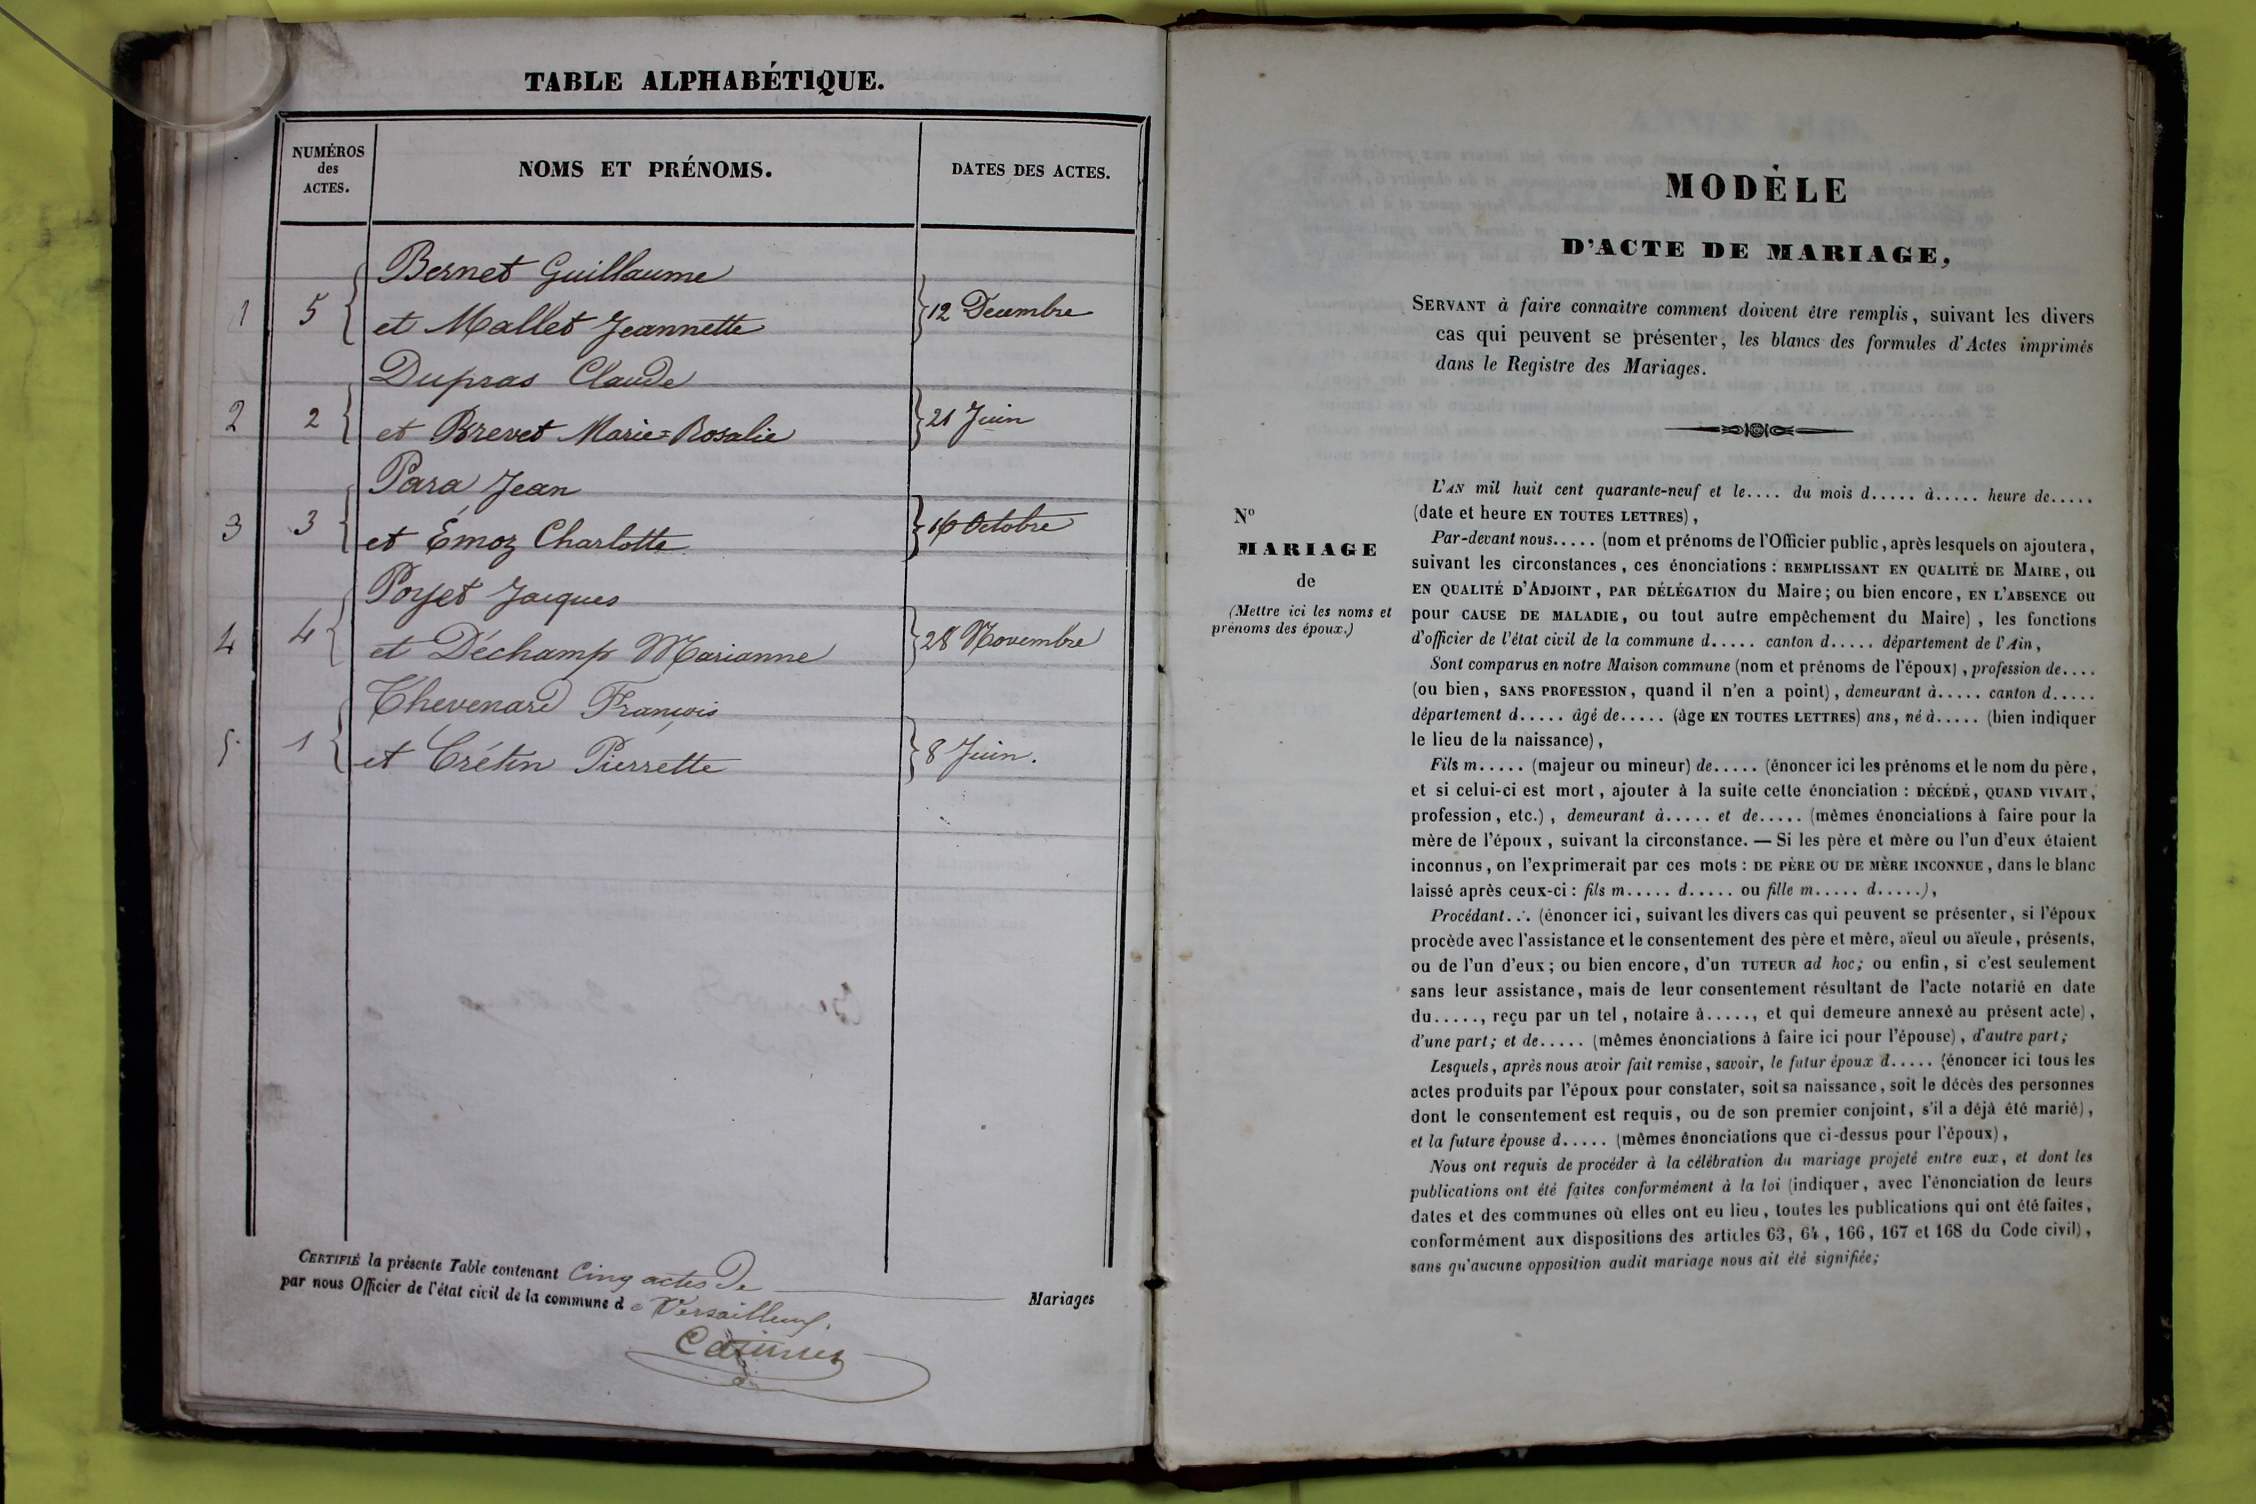 TABLE ALPHABÉTIQUE.
NUMÉROS
des
ACTES.
NOMS ET PRÉNOMS.
DATES DES ACTES.
Bernet Guillaume
1 5 et Mallet Jeannette 12 Décembre
Dupras Claude
2 2 et Brevet Marie=Rosalie 21 Juin
Para Jean
3 3 et Émoz Charlotte 16 Octobre
Poyet Jacques
4 4 et Déchamp Marianne 28 Novembre
Thevenard François
5 1 et Crétin Pierrette 8 Juin.
CERTIFIÉ la présente Table contenant Cinq actes De Mariages
par nous Officier de l'état civil de la commune d e Versailleux.
MODÈLE
D'ACTE DE MARIAGE,
SERVANT à faire connaître comment doivent être remplis, suivant les divers
cas qui peuvent se présenter, les blancs des formules d'Actes imprimés
dans le Registre des Mariages.
N°
MARIAGE
de
(Mettre ici les noms et
prénoms des époux.)
L'AN mil huit cent quarante-neuf et le.... du mois d..... à..... heure de.....
(date et heure EN TOUTES LETTRES),
Par-devant nous..... (nom et prénoms de l'Officier public, après lesquels on ajoutera,
suivant les circonstances, ces énonciations : REMPLISSANT EN QUALITÉ DE MAIRE, OU
EN QUALITÉ D'ADJOINT, PAR DÉLÉGATION du Maire; ou bien encore, EN L'ABSENCE ou
pour CAUSE DE MALADIE, ou tout autre empêchement du Maire), les fonctions
d'officier de l'état civil de la commune d..... canton d..... département de l'Ain,
Sont comparus en notre Maison commune (nom et prénoms de l'époux), profession de....
(ou bien, SANS PROFESSION, quand il n'en a point), demeurant à..... canton d.....
département d..... âgé de..... (âge EN TOUTES LETTRES) ans, né à..... (bien indiquer
le lieu de la naissance),
Fils m..... (majeur ou mineur) de..... (énoncer ici les prénoms et le nom du père,
et si celui-ci est mort, ajouter à la suite cette énonciation : DÉCÉDÉ, QUAND VIVAIT,
profession, etc.), demeurant à..... et de..... (mêmes énonciations à faire pour la
mère de l'époux, suivant la circonstance. — Si les père et mère ou l'un d'eux étaient
inconnus, on l'exprimerait par ces mots : DE PÈRE OU DE MÈRE INCONNUE, dans le blanc
laissé après ceux-ci : fils m..... d..... ou fille m..... d.....),
Procédant... (énoncer ici, suivant les divers cas qui peuvent se présenter, si l'époux
procède avec l'assistance et le consentement des père et mère, aïeul ou aïeule, présents,
ou de l'un d'eux; ou bien encore, d'un TUTEUR ad hoc; ou enfin, si c'est seulement
sans leur assistance, mais de leur consentement résultant de l'acte notarié en date
du....., reçu par un tel, notaire à....., et qui demeure annexé au présent acte),
d'une part; et de..... (mêmes énonciations à faire ici pour l'épouse), d'autre part;
Lesquels, après nous avoir fait remise, savoir, le futur époux d..... (énoncer ici tous les
actes produits par l'époux pour constater, soit sa naissance, soit le décès des personnes
dont le consentement est requis, ou de son premier conjoint, s'il a déjà été marié),
et la future épouse d..... (mêmes énonciations que ci-dessus pour l'époux),
Nous ont requis de procéder à la célébration du mariage projeté entre eux, et dont les
publications ont été faites conformément à la loi (indiquer, avec l'énonciation de leurs
dates et des communes où elles ont eu lieu, toutes les publications qui ont été faites,
conformément aux dispositions des articles 63, 64, 166, 167 et 168 du Code civil),
sans qu'aucune opposition audit mariage nous ait été signifiée;